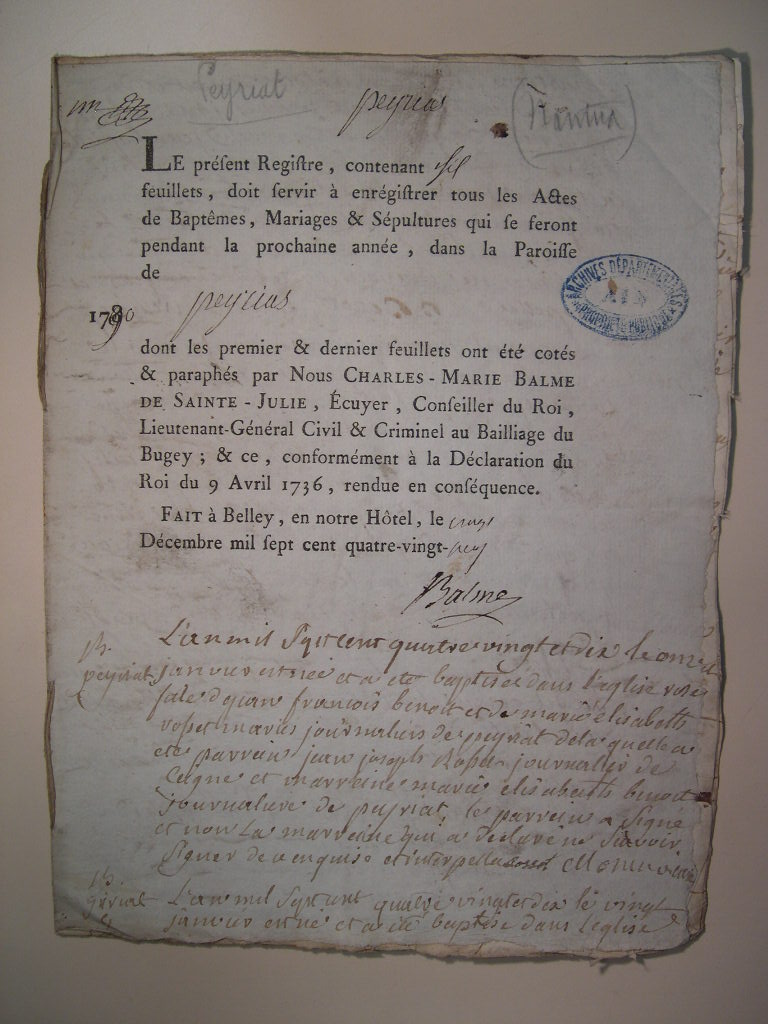 Peyriat
peyrias
(Nantua)
LE préſent Regiſtre, contenant
feuillets, doit ſervir à enrégiſtrer tous les Actes
de Baptêmes, Mariages & Sépultures qui ſe feront
pendant la prochaine année, dans la Paroiſſe
de
peyrias
1790
ARCHIVES DÉPARTEMENTALES
AIN
PROPRIÉTÉ PUBLIQUE
dont les premier & dernier feuillets ont été cotés
& paraphés par Nous CHARLES-MARIE BALME
DE SAINTE-JULIE, Écuyer, Conſeiller du Roi,
Lieutenant-Général Civil & Criminel au Bailliage du
Bugey; & ce, conformément à la Déclaration du
Roi du 9 Avril 1736, rendue en conſéquence.
FAIT à Belley, en notre Hôtel, le
Décembre mil ſept cent quatre-vingt-
Balme
B.
peyriat
L'an mil Sept cent quatre vingt et dix le onze
janvier est née et a ete baptisee dans l'eglise
jean francois benoit et de marie elisabeth
maries journaliers de peyriat de laquelle a
ete parrein jean joseph journalier de
et marreine marie elisabeth benoit
journaliere de peyriat, le parrein a Signé
et non La marreine qui a declaré ne Savoir
Signer de ce enquise et interpellée
B.
L'an mil Sept cent quatre vingt et dix le vingt
janvier est né et a été baptisé dans l'eglise